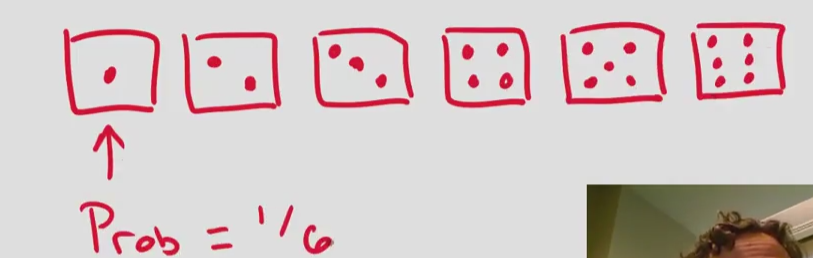 Prob = 1/6